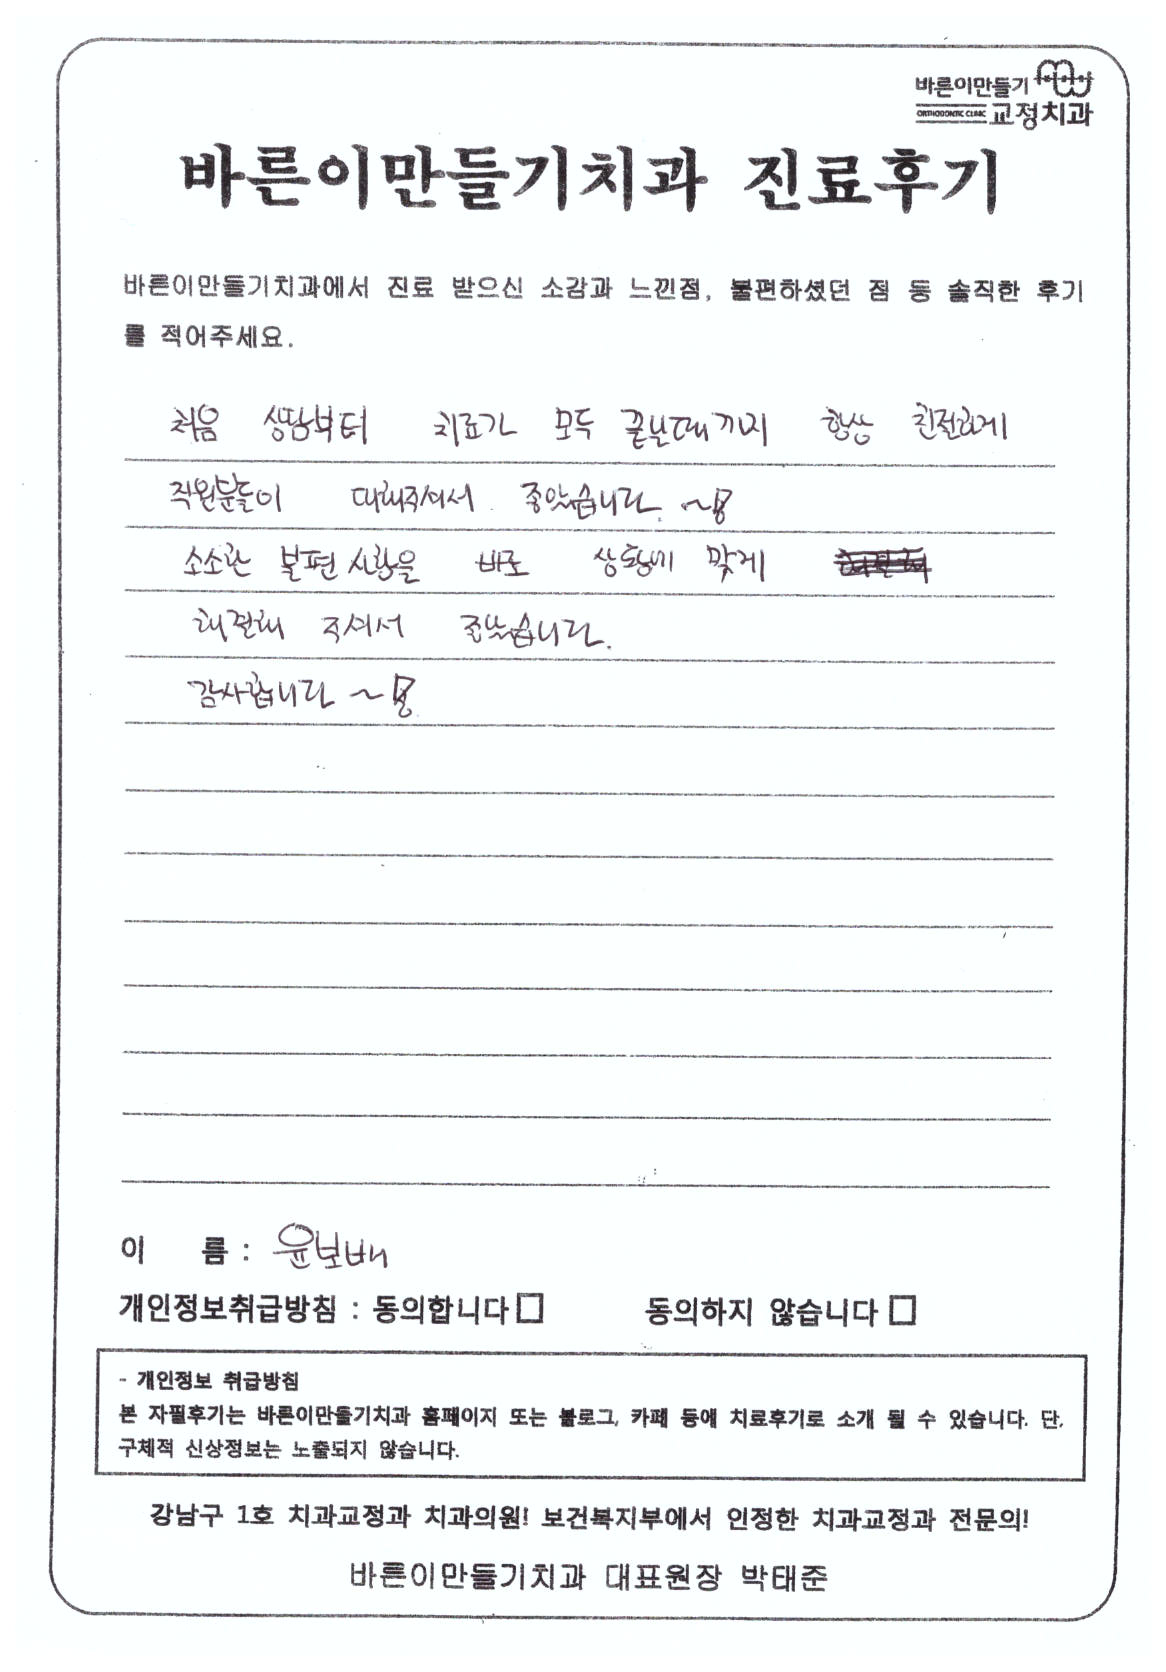 바른이만들기
ORTHODONTIC CLINIC 교정치과
바른이만들기치과 진료후기
바른이만들기치과에서 진료 받으신 소감과 느낀점, 불편하셨던 점 등 솔직한 후기
를 적어주세요.
처음 상담부터 치료가 모두 끝날때까지 항상 친절하게
직원분들이 대해주셔서 좋았습니다. ~
소소한 불편 사항을 바로 상황에 맞게
해결해 주셔서 좋았습니다.
감사합니다 ~
이 름 : 윤보배
개인정보취급방침 : 동의합니다□ 동의하지 않습니다□
- 개인정보 취급방침
본 자필후기는 바른이만들기치과 홈페이지 또는 블로그, 카페 등에 치료후기로 소개 될 수 있습니다. 단,
구체적 신상정보는 노출되지 않습니다.
강남구 1호 치과교정과 치과의원! 보건복지부에서 인정한 치과교정과 전문의!
바른이만들기치과 대표원장 박태준